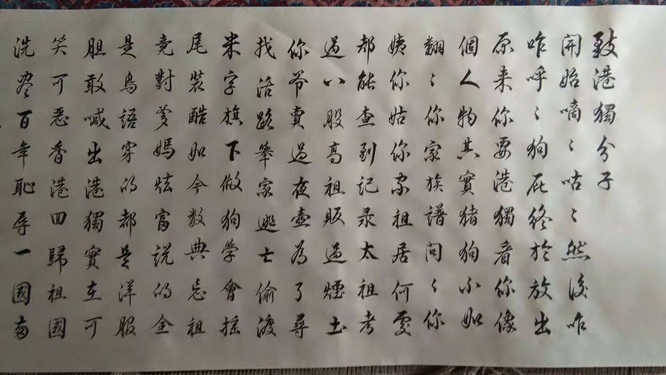 致港獨分子
開始嘀〻咕〻然後咋
咋呼〻狗屁終於放出
原来你要港獨看你像
個人物其實豬狗不如
翻〻你家族譜問〻你
姨你姑你家祖居何處
都能查到記录太祖考
過八股高祖販過煙土
你爷賣過夜壺為了尋
找活路舉家逃士偷渡
米字旗下做狗學會摇
尾裝酷如今数典忘祖
竟對爹媽炫富說的全
是鳥語穿的都是洋服
胆敢喊出港獨實在可
笑可恶香港回歸祖國
洗尽百年恥辱一國两